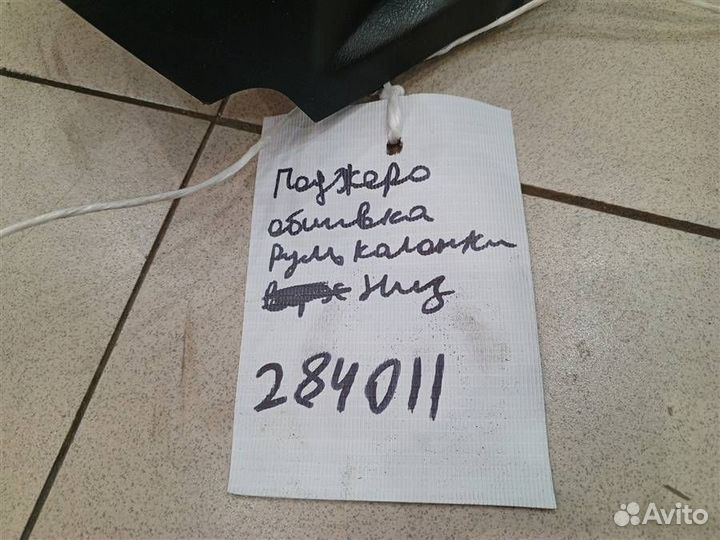 Поджеро
обшивка
Руль каланки
Низ
284011
Avito